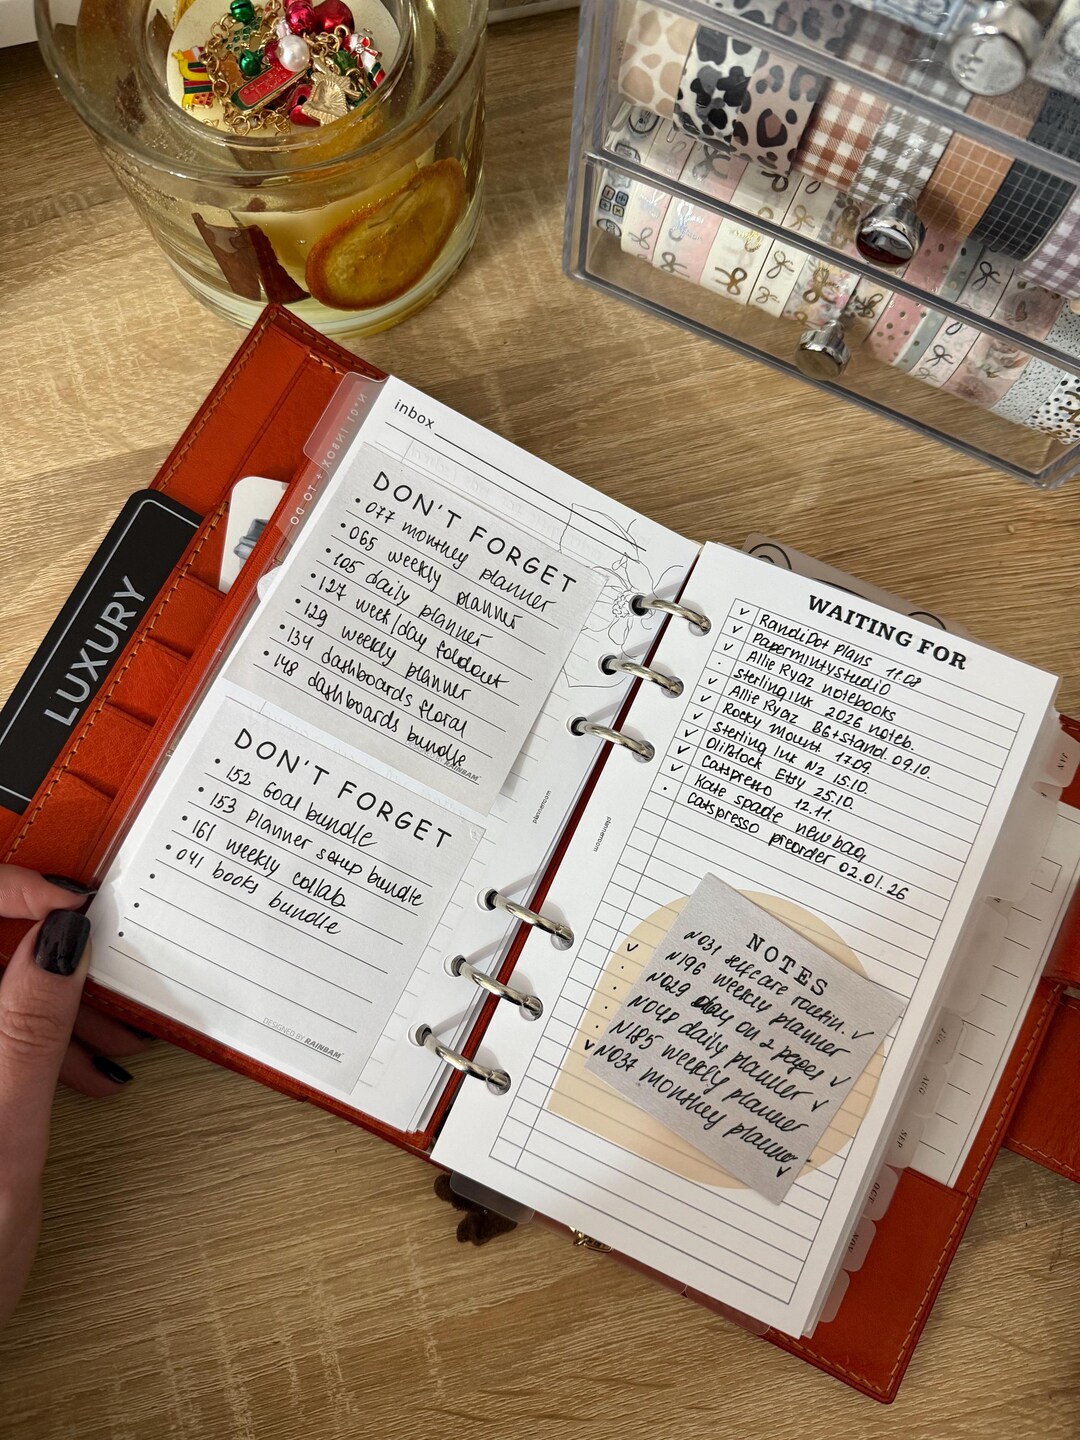 LUXURY
N°01 INBOX + TO-DO
inbox
DON'T FORGET
• 077 monthly planner
• 065 weekly planner
• 105 daily planner
• 127 week/day foldout
• 129 weekly planner
• 134 dashboards floral
• 148 dashboards bundle
RAINBAM
DON'T FORGET
• 152 Goal bundle
• 153 Planner setup bundle
• 161 weekly collab
• 041 books bundle
DESIGNED BY RAINBAM
plannersroom
plannersroom
WAITING FOR
✓ RandiDot Plans 11.08
✓ PapermintystudiO
✓ Allie Ryaz notebooks
• Sterling Ink 2026 noteb.
✓ Allie Ryaz B6+stand. 09.10.
✓ Rocky Mount. 17.09.
✓ Sterling Ink N2 15.10.
✓ Oliblock Etsy 25.10.
✓ Catspresso 12.11.
✓ Kate Spade new bag
• Catspresso preorder 02.01.26
NOTES
N031 selfcare routin. ✓
N196 weekly planner
N029 day on 2 pages ✓
N048 daily planner ✓
N185 weekly planner
✓ N037 monthly planner ✓
JUL
AUG
SEP
OCT
NOV